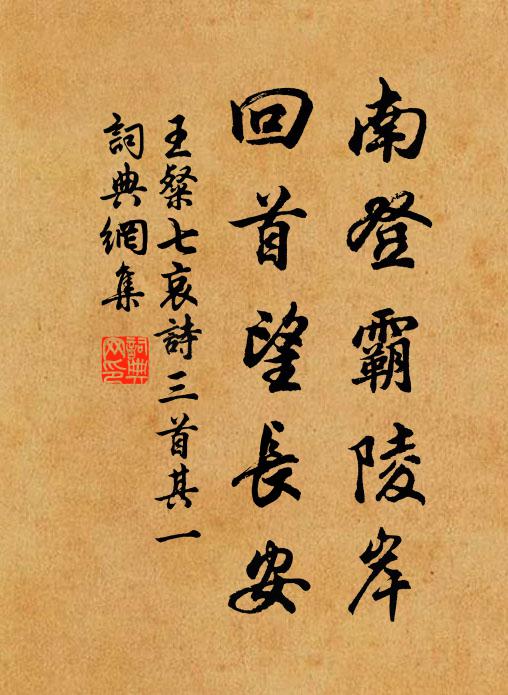 南登霸陵岸
回首望長安
王粲七哀詩三首其一
詞典網集
詞典網印